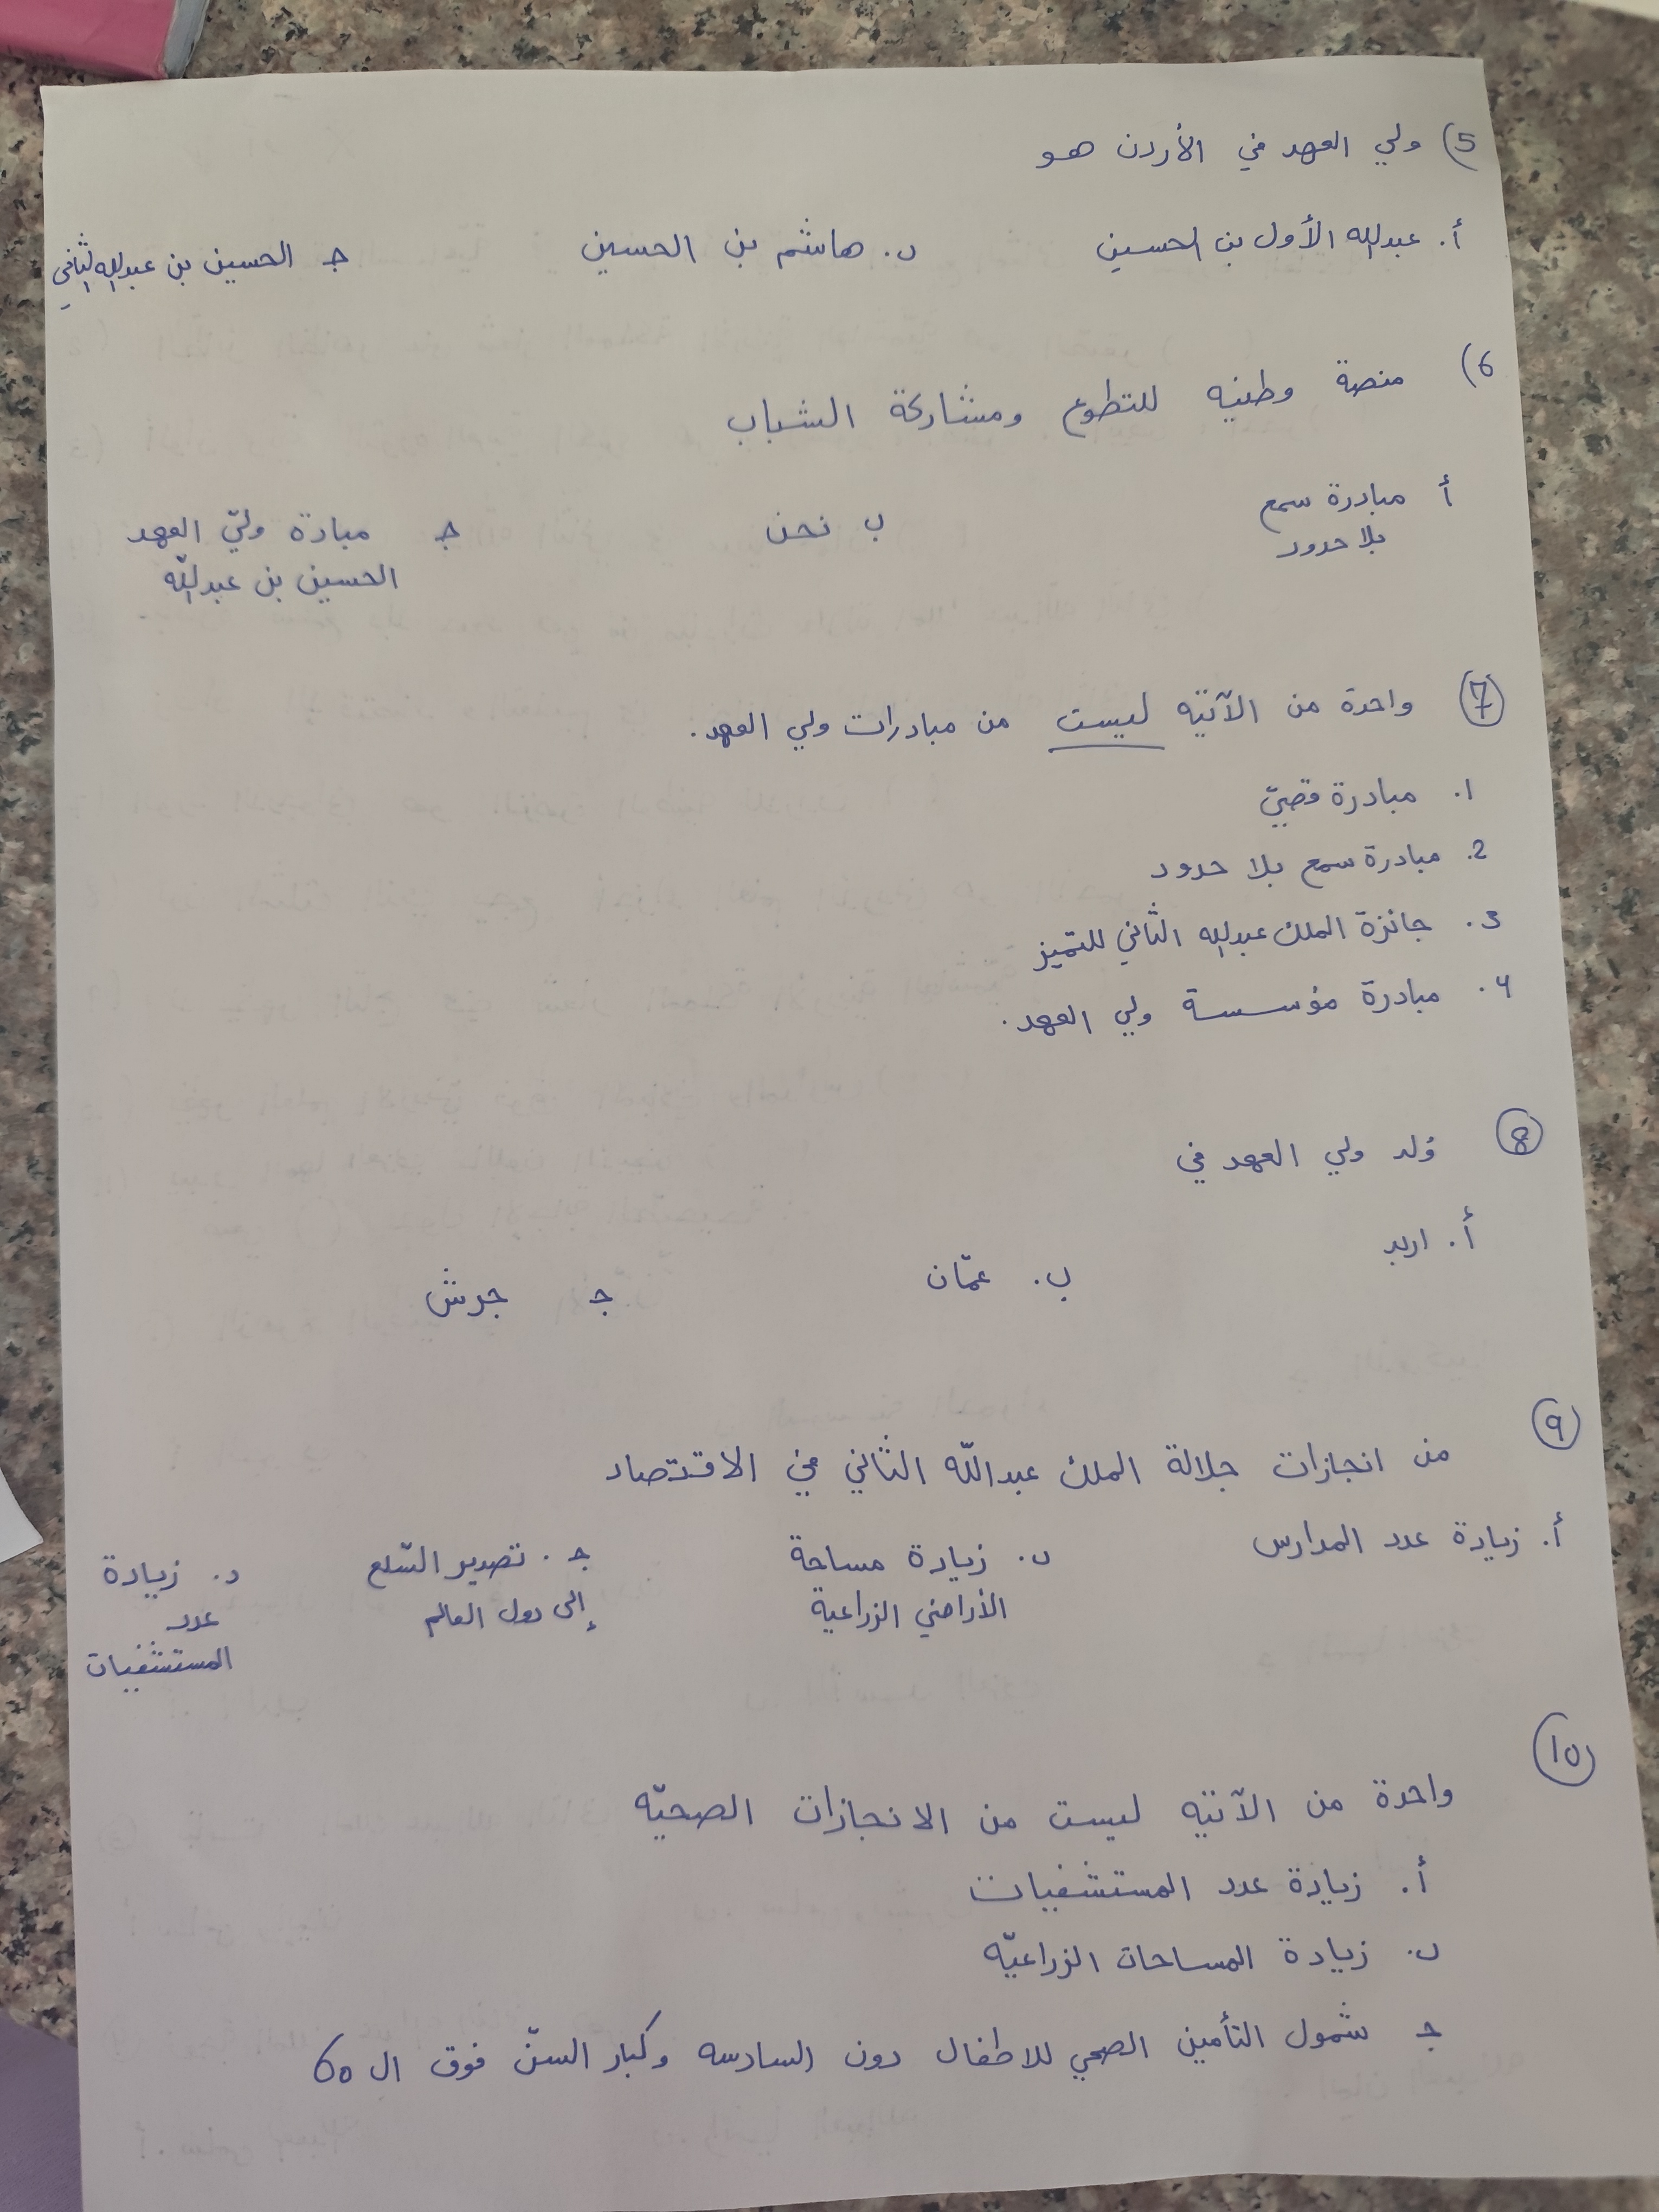 5) ولي العهد في الأردن هو
أ. عبدالله الأول بن الحسين ب. هاشم بن الحسين جـ الحسين بن عبدالله الثاني
6) منصة وطنيه للتطوع ومشاركة الشباب
أ مبادرة سمع بلا حدود ب نحن جـ مبادة وليّ العهد الحسين بن عبدالله
7 واحدة من الآتيه ليست من مبادرات ولي العهد.
1. مبادرة قصيّ
2. مبادرة سمع بلا حدود
3. جائزة الملك عبدالله الثاني للتميز
4. مبادرة مؤسسة ولي العهد.
8 وُلد ولي العهد في
أ. اربد ب. عمّان جـ جرش
9 من انجازات جلالة الملك عبدالله الثاني في الاقتصاد
أ. زيادة عدد المدارس ب. زيادة مساحة الأراضي الزراعية جـ. تصدير السّلع إلى دول العالم د. زيادة عدد المستشفيات
10 واحدة من الآتيه ليست من الانجازات الصحيّه
أ. زيادة عدد المستشفيات
ب. زيادة المساحات الزراعيّه
جـ شمول التأمين الصحي للاطفال دون السادسه وكبار السنّ فوق ال 60